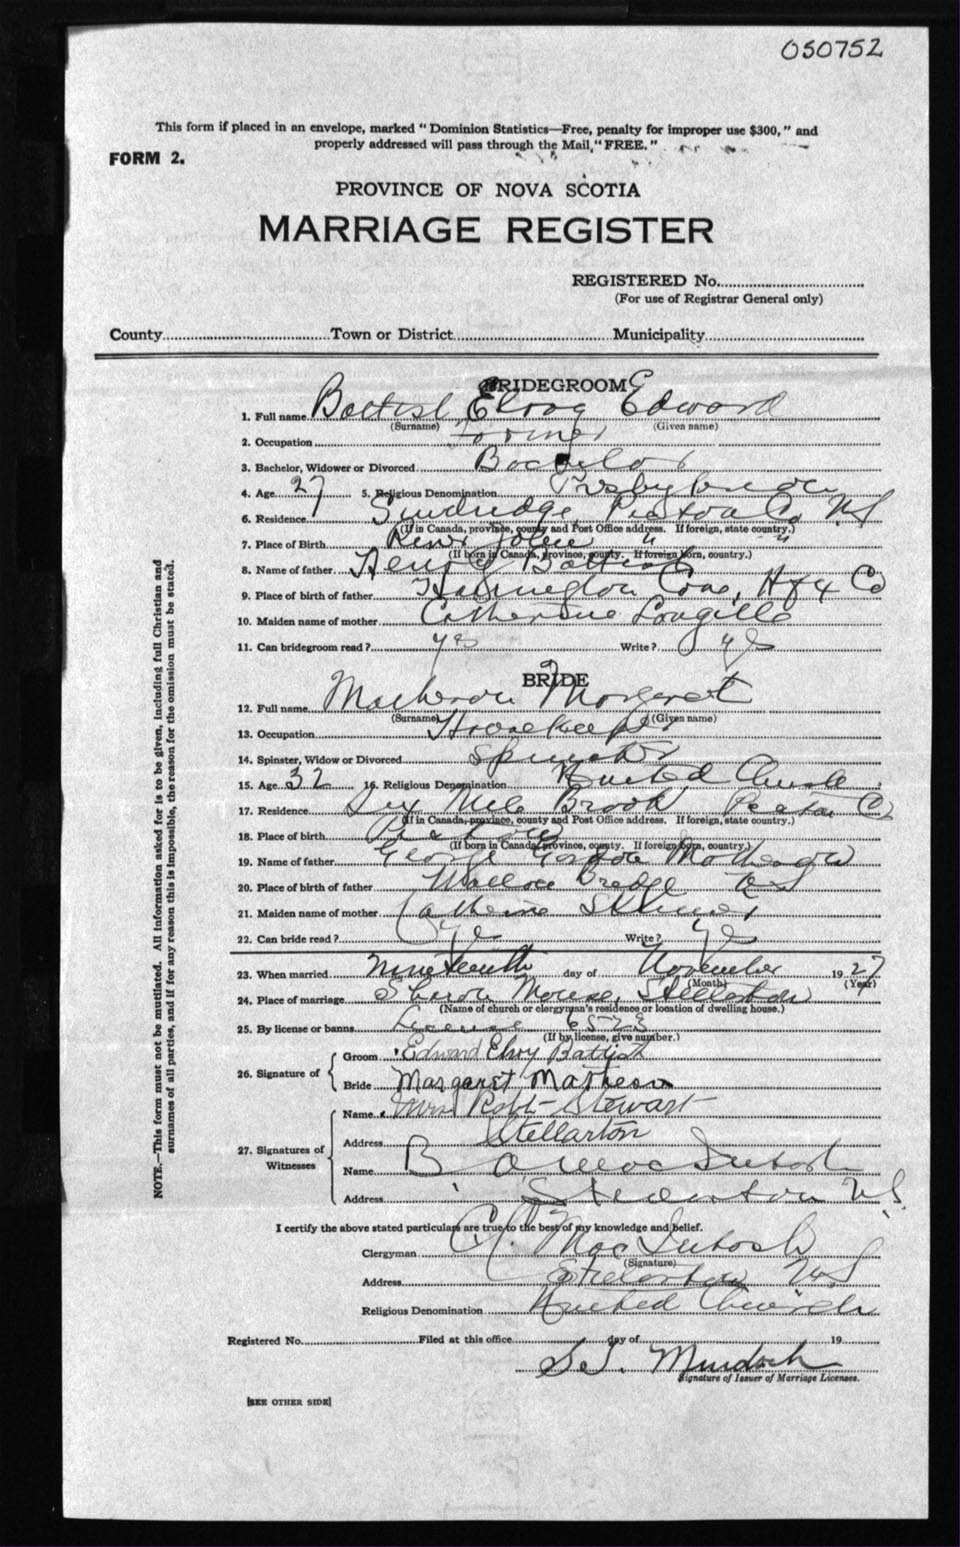 050752
This form if placed in an envelope, marked "Dominion Statistics—Free, penalty for improper use $300," and
properly addressed will pass through the Mail, "FREE."
FORM 2.
PROVINCE OF NOVA SCOTIA
MARRIAGE REGISTER
REGISTERED No.
(For use of Registrar General only)
County Town or District Municipality
BRIDEGROOM
1. Full name Battist Elroy Edward
(Surname) (Given name)
2. Occupation Farmer
3. Bachelor, Widower or Divorced Bachelor
4. Age 27 5. Religious Denomination Presbyterian
6. Residence Pictou Co NS
(If in Canada, province, county and Post Office address. If foreign, state country.)
7. Place of Birth River John " "
(If born in Canada, province, county. If foreign born, country.)
8. Name of father Henry Battist
9. Place of birth of father Harrington Cove, Hfx Co
10. Maiden name of mother Catherine Langille
11. Can bridegroom read? yes Write? yes
BRIDE
12. Full name Matheson Margaret
(Surname) (Given name)
13. Occupation Housekeeper
14. Spinster, Widow or Divorced Spinster
15. Age 32 16. Religious Denomination United Church
17. Residence Six Mile Brook Pictou Co
(If in Canada, province, county and Post Office address. If foreign, state country.)
18. Place of birth Pictou
(If born in Canada, province, county. If foreign born, country.)
19. Name of father George Gordon Matheson
20. Place of birth of father Wallace Bridge NS
21. Maiden name of mother Catherine
22. Can bride read? yes Write? yes
23. When married Nineteenth day of November 1927
(Month) (Year)
24. Place of marriage Sharon Manse, Stellarton
(Name of church or clergyman's residence or location of dwelling house.)
25. By license or banns License 6523
(If by license, give number.)
26. Signature of
Groom Edward Elroy Battist
Bride Margaret Matheson
27. Signatures of Witnesses
Name Mrs Robt Stewart
Address Stellarton
Name B MacIntosh
Address Stellarton NS.
I certify the above stated particulars are true to the best of my knowledge and belief.
Clergyman MacIntosh
(Signature)
Address Stellarton NS
Religious Denomination United Church
Registered No. Filed at this office day of 19
S.J. Murdoch
Signature of Issuer of Marriage Licenses.
[SEE OTHER SIDE]
NOTE.—This form must not be mutilated. All information asked for is to be given, including full Christian and
surnames of all parties, and if for any reason this is impossible, the reason for the omission must be stated.